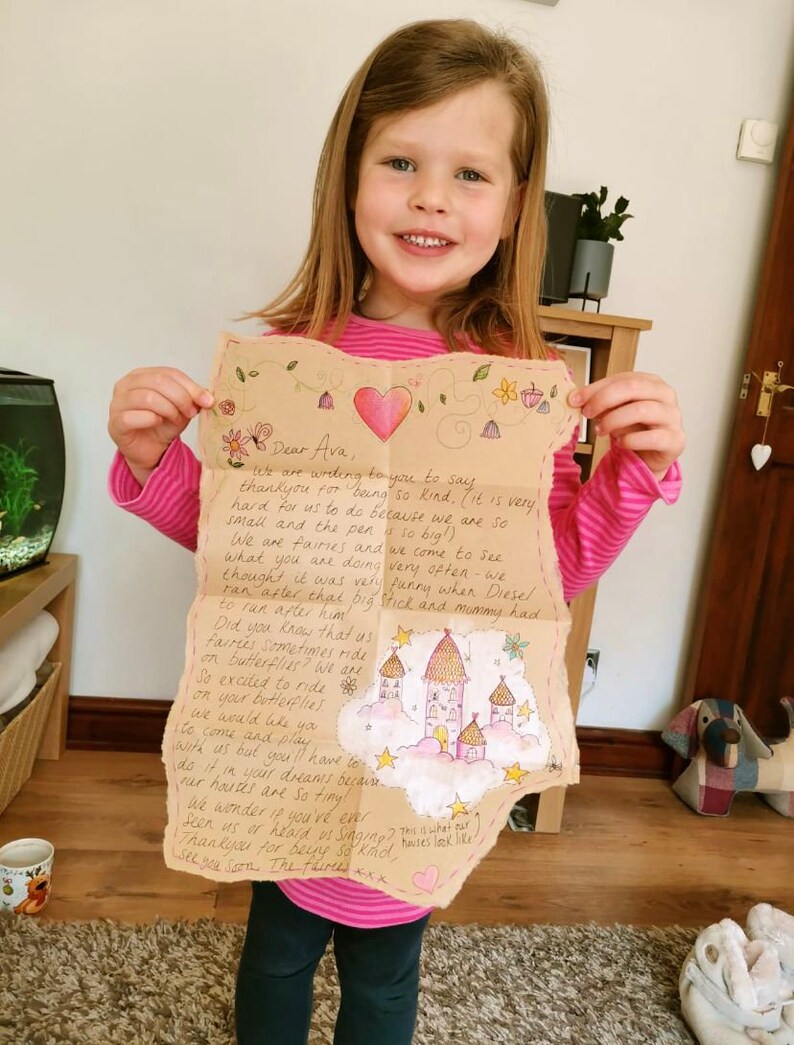 Dear Ava,
We are writing to you to say
thankyou for being so kind. (it is very
hard for us to do because we are so
small and the pen is so big!)
We are fairies and we come to see
what you are doing very often - we
thought it was very funny when Diesel
ran after that big stick and mummy had
to run after him!
Did you know that us
fairies sometimes ride
on butterflies? We are
so excited to ride
on your butterflies.
We would like you
to come and play
with us but you'll have to
do it in your dreams because
our houses are so tiny!
We wonder if you've ever
seen us or heard us singing?
Thankyou for being so kind,
see you soon. The fairies xxx
This is what our
houses look like